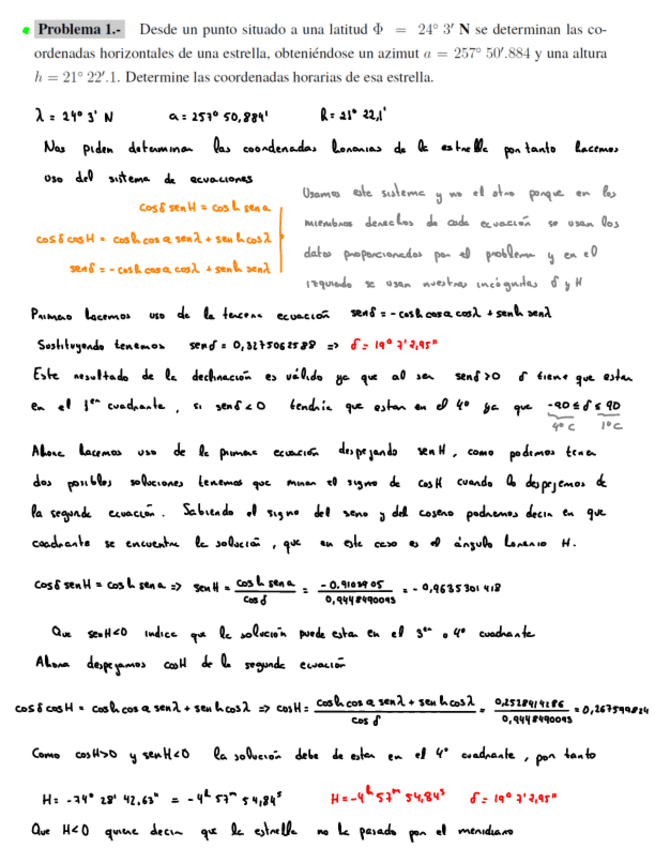 Problema 1.- Desde un punto situado a una latitud Φ = 24° 3' N se determinan las co-
ordenadas horizontales de una estrella, obteniéndose un azimut a = 257° 50'.884 y una altura
h = 21° 22'.1. Determine las coordenadas horarias de esa estrella.
λ = 24° 3' N a = 257° 50,884' h = 21° 22,1'
Nos piden determinar las coordenadas horarias de la estrella por tanto hacemos
uso del sistema de ecuaciones
cosδ senH = cosh sena
cosδ cosH = cosh cosa senλ + senh cosλ
senδ = -cosh cosa cosλ + senh senλ
Usamos este sistema y no el otro porque en los
miembros derechos de cada ecuación se usan los
datos proporcionados por el problema y en el
izquierdo se usan nuestras incógnitas δ y H
Primero hacemos uso de la tercera ecuación senδ = -cosh cosa cosλ + senh senλ
Sustituyendo tenemos senδ = 0,3275062588 => δ = 19° 7' 2,95"
Este resultado de la declinación es válido ya que al ser senδ>0 δ tiene que estar
en el 1er cuadrante, si senδ<0 tendría que estar en el 4º ya que -90 ≤ δ ≤ 90
4º C 1º C
Ahora hacemos uso de la primera ecuación despejando senH, como podemos tener
dos posibles soluciones tenemos que mirar el signo de cosH cuando lo despejemos de
la segunda ecuación. Sabiendo el signo del seno y del coseno podremos decir en que
cuadrante se encuentra la solución, que en este caso es el ángulo horario H.
cosδ senH = cosh sena => senH = cosh sena / cosδ = -0,9103905 / 0,9448490093 = -0,9635301418
Que senH<0 indica que la solución puede estar en el 3er o 4º cuadrante
Ahora despejamos cosH de la segunda ecuación
cosδ cosH = cosh cosa senλ + senh cosλ => cosH = cosh cosa senλ + senh cosλ / cosδ = 0,2528414286 / 0,9448490093 = 0,267599824
Como cosH>0 y senH<0 la solución debe de estar en el 4º cuadrante, por tanto
H = -74° 28' 42,63" = -4h 57m 54,84s H = -4h 57m 54,84s δ = 19° 7' 2,95"
Que H<0 quiere decir que la estrella no ha pasado por el meridiano